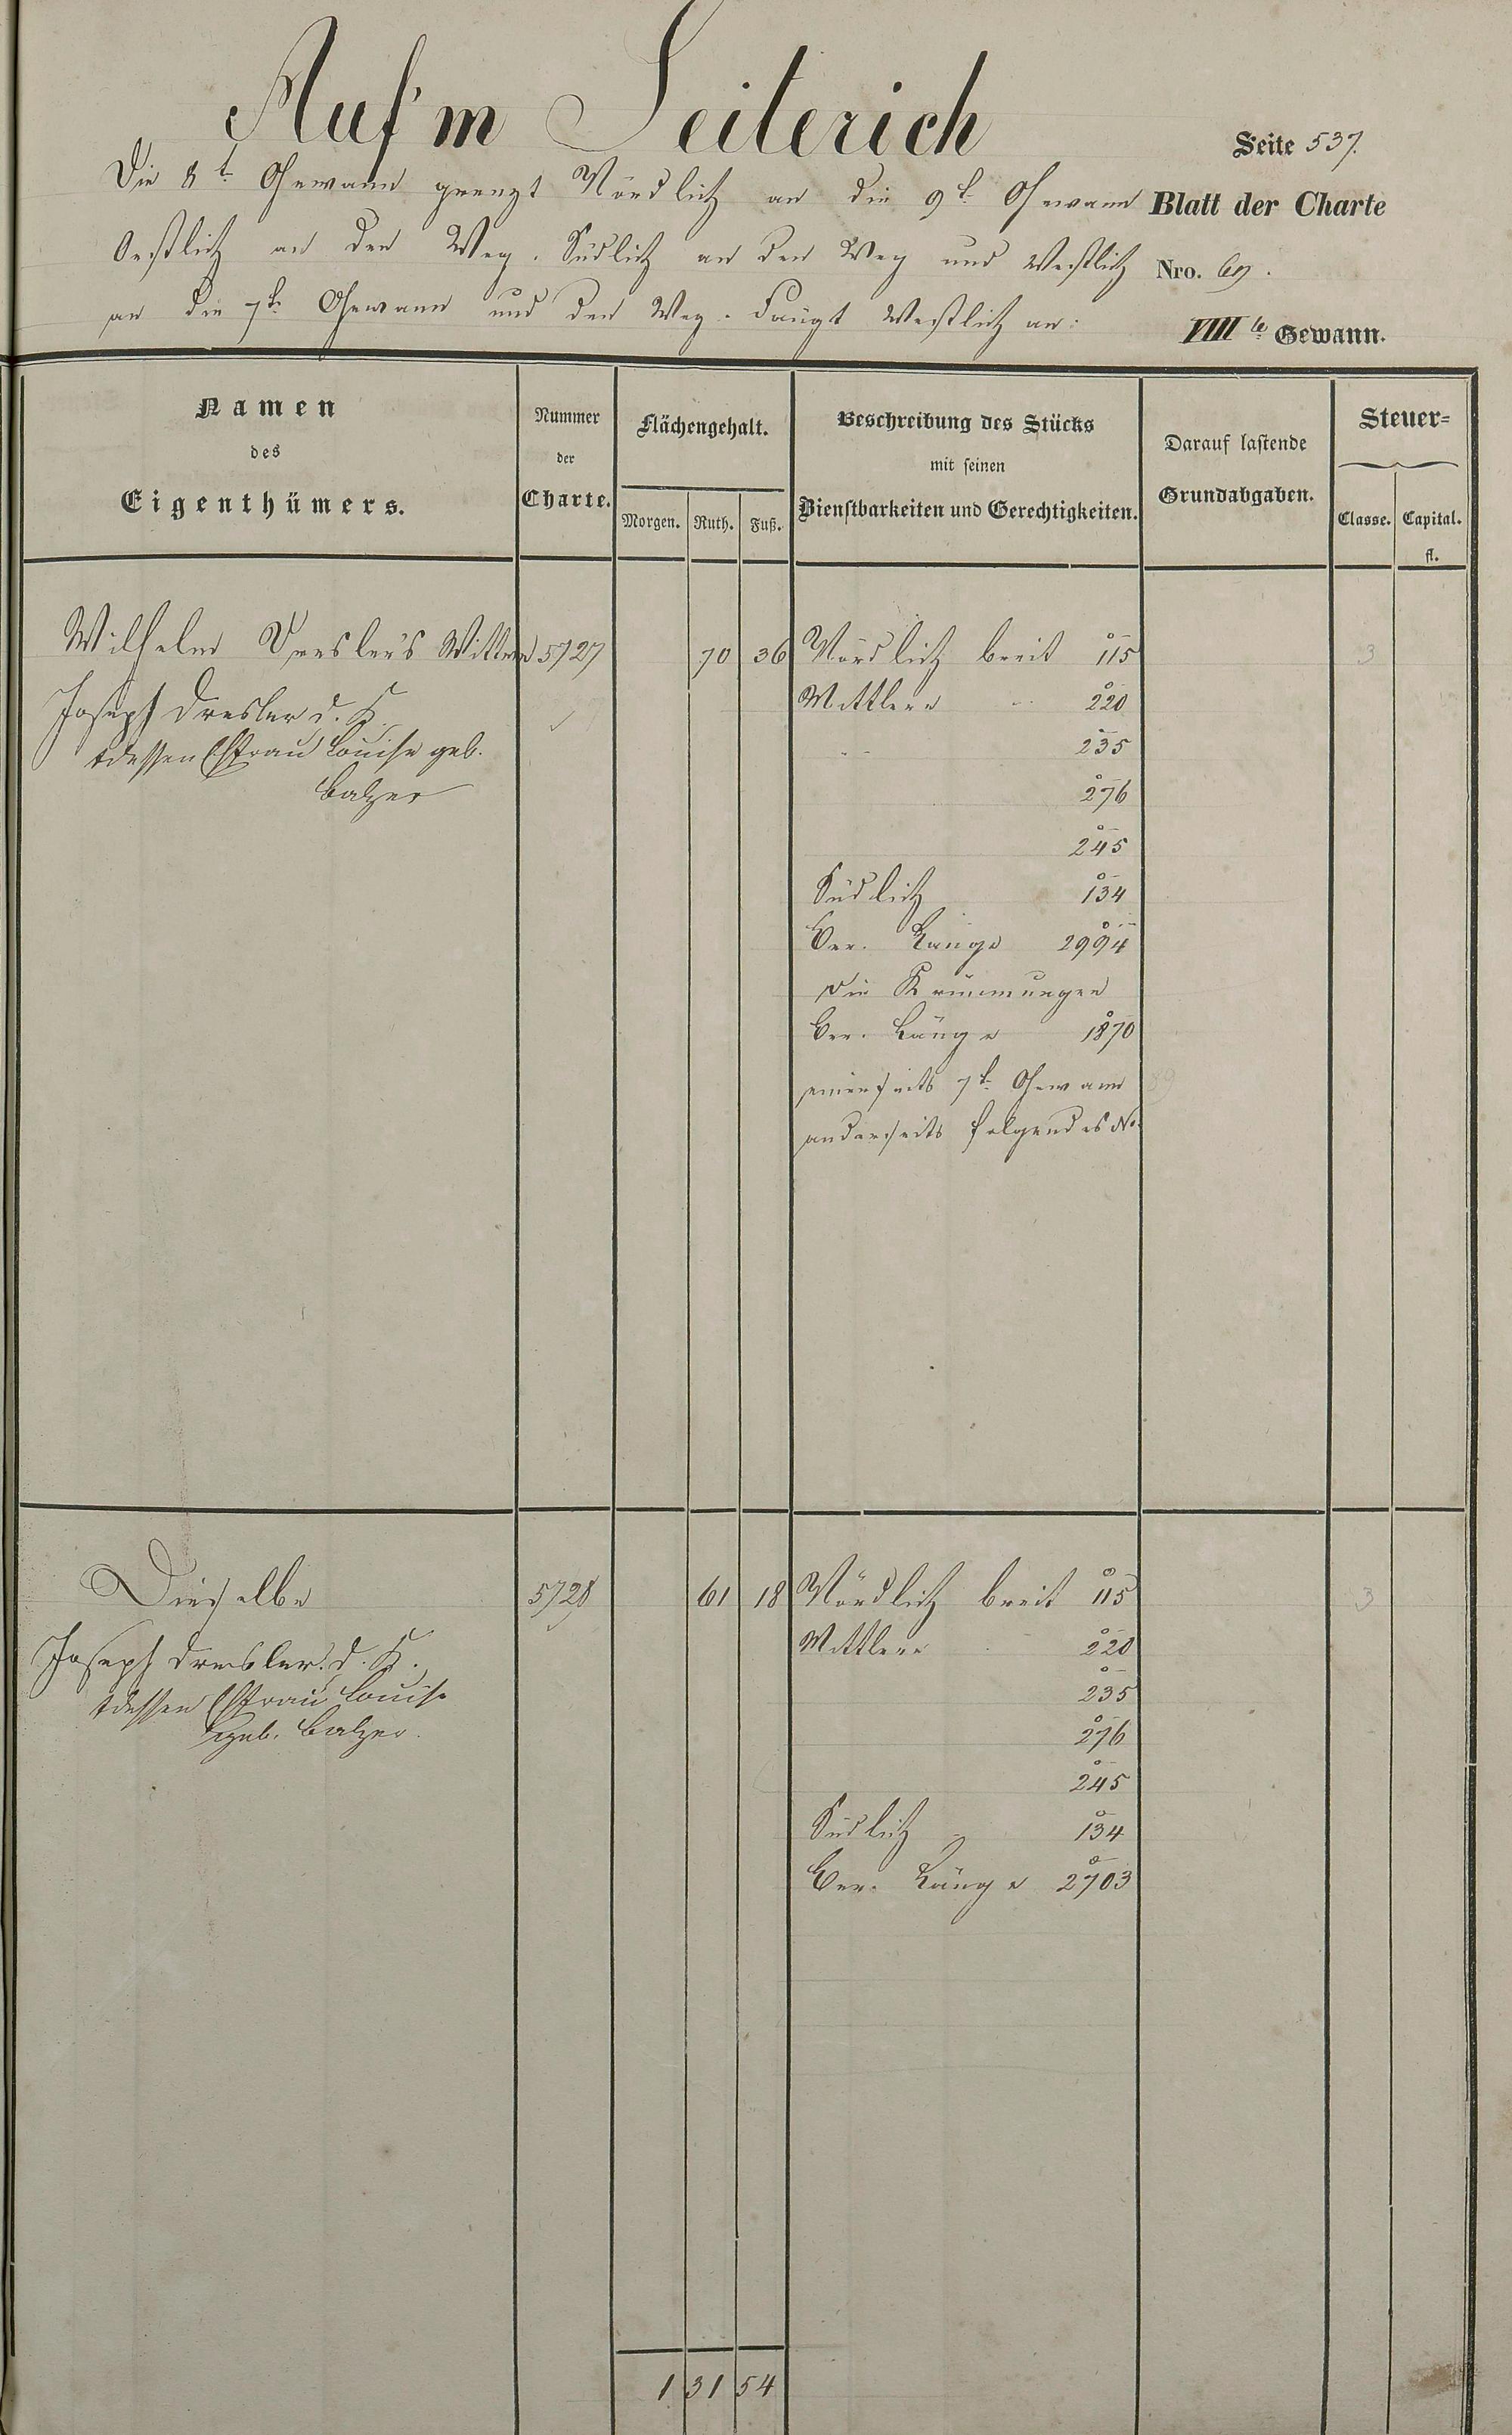 Auf'm Seiterich
Seite 537.
Die 8t. Gewann grenzt Nördlich an die 9t. Gewann
Blatt der Charte
Oestlich an den Weg. Südlich an den Weg und Westlich
Nro. 69.
an die 7t. Gewann und den Weg. Fängt Westlich an:
VIIIte Gewann.
Namen
des
Eigenthümers.
Nummer
der
Charte.
Flächengehalt.
Morgen. Ruth. Fuß.
Beschreibung des Stücks
mit seinen
Dienstbarkeiten und Gerechtigkeiten.
Darauf lastende
Grundabgaben.
Steuer=
Classe. Capital.
fl.
Wilhelm Dresler's Wittwe 5727 70 36 Nördlich breit 115 3
Joseph Dresler d. K.
Mittlere 220
& dessen Efrau Louise geb.
235
Balzer
276
245
Südlich 134
Ver. Länge 2994
Die Krümmungen
Ver. Länge 1870
einerseits 7t. Gewann 89
anderseits folgendes No.
Dieselbe 5728 61 18 Nördlich breit 115 3
Joseph Dresler d. K.
Mittlere 220
& dessen Efrau Louise
235
geb. Balzer.
276
245
Südlich 134
Ver. Länge 2703
1 31 54